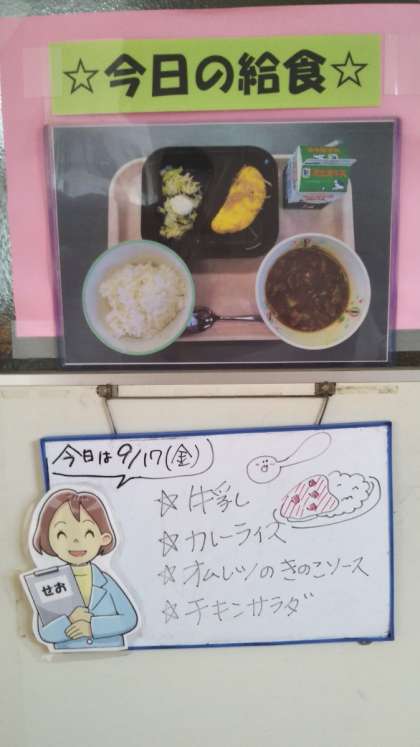 ☆今日の給食☆
今日は9/17(金)
☆牛乳
☆カレーライス
☆オムレツのきのこソース
☆チキンサラダ
せお